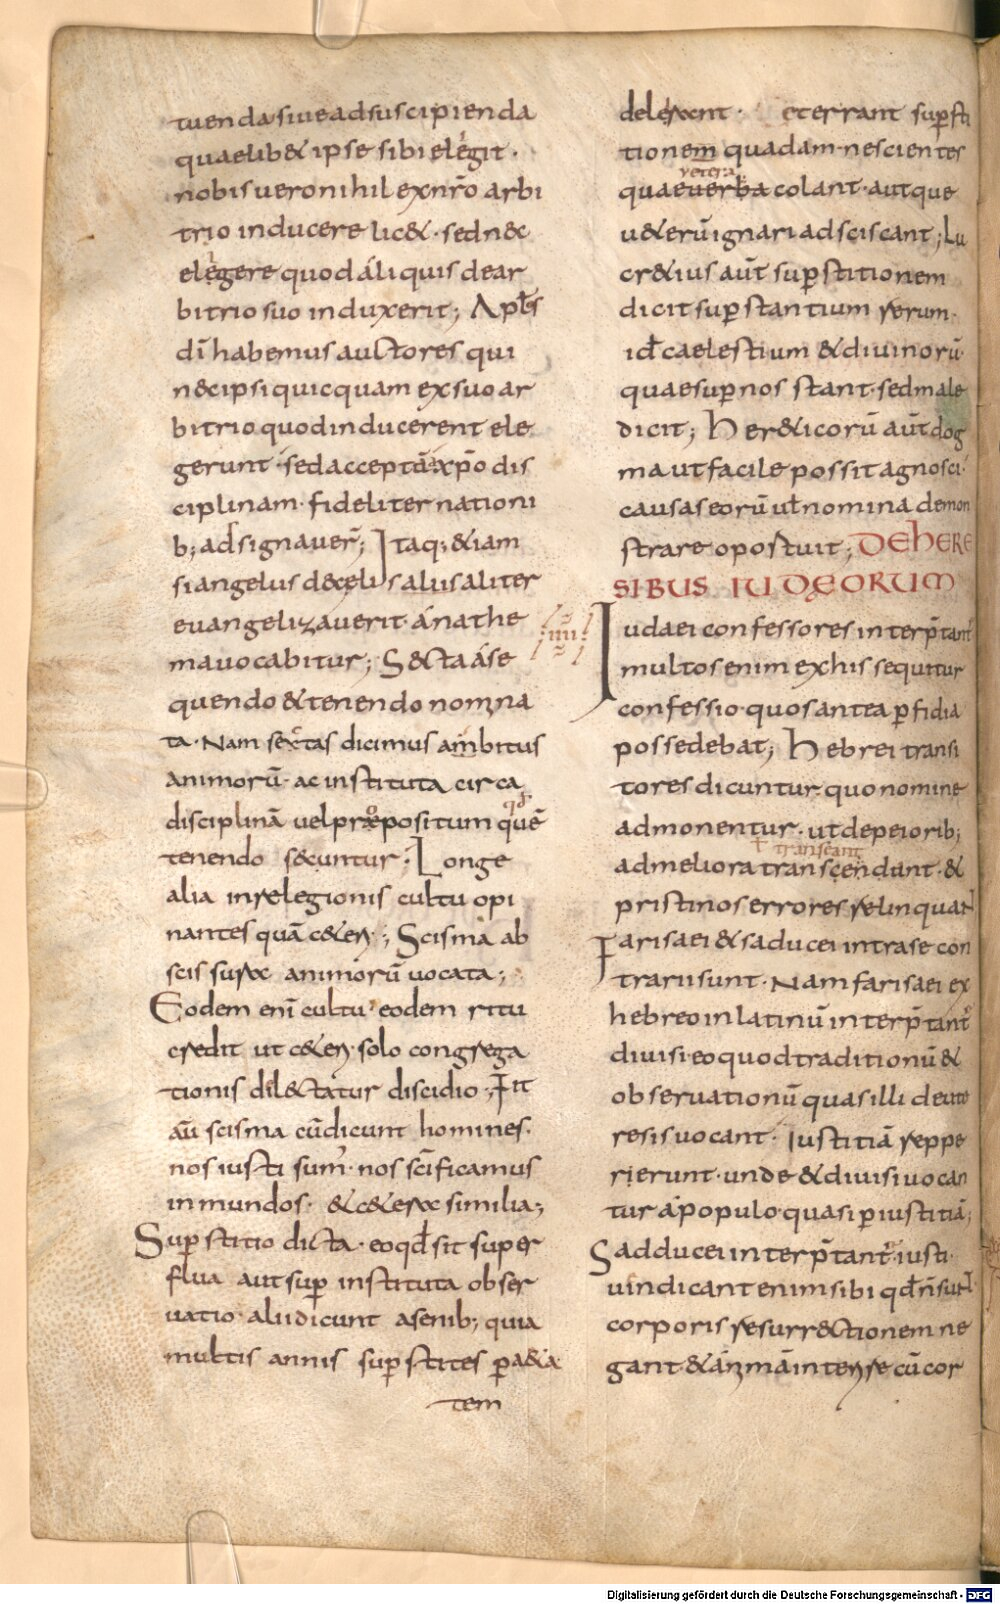 tuenda siue ad suscipienda
quaelib& ipse sibi elegit ·
nobis uero nihil ex nr̄o arbi
trio inducere lic& · sed nec
elegere quod áliquis de ar
bitrio suo induxerit; Apl̄s
dī habemus auctores qui
nec ipsi quicquam ex suo ar
bitrio quod inducerent ele
gerunt · sed acceptā a xp̄o dis
ciplinam · fideliter nationi
b; adsignauer̄; Itaq; & iam
si angelus de celis alius aliter
euangelizauerit · ánathe
ma uocabitur; Secta á se
quendo & tenendo nomina
ta · Nam sectas dicimus ambitus
animorū · ac instituta circa
disciplinā uel praepositum quē
tenendo secuntur; Longe
alia in relegionis cultu opi
nantes quā c&eri; Scisma ab
scissurae animorū uocata;
Eodem enī cultu · eodem ritu
credit ut c&eri · solo congrega
tionis dilectatur discidio; Fit
aū scisma cū dicunt homines ·
nos iusti sum̄ · nos sc̄ificamus
inmundos · & c&erae similia;
Superstitio dicta · eo qd̄ sit super
flua aut sup̄ instituta obser
uatio · alii dicunt a senib; quia
multis annis sup̄stites p̄ aeta
tem
delerent · &errant sup̄sti
tionem quadam · nescientes
uetera
quae uerba colant · aut que
u&erū ignari adsciscant; Lu
cr&ius aūt sup̄stitionem
dicit sup̄stantium rerum ·
id̄ caelestium & diuinorū ·
quae sup̄ nos stant · sed male
dicit; Her&icorū aūt dog
ma ut facile possit agnosci ·
causas eorū ul̄ nomina demon
strare oportuit; DE HERE
SIBUS IUDEORUM
IIII
Iudaei confessores interp̄tant̄
multos enim ex his sequitur
confessio · quos antea p̄fidia
possedebat; Hebrei transi
tores dicuntur · quo nomine
admonentur · ut de peiorib;
ł transeant
ad meliora transcendant · &
pristinos errores relinquant
Farisaei & saducei intra se con
trarii sunt · Nam farisaei ex
hebreo in latinū interp̄tant̄
diuisi · eo quod traditionū &
obseruationū quas illi deute
resis uocant · Iustitiā reppe
rierunt · unde & diuisi uocan
tur á populo · quasi p̄ iustitiā;
Sadducei interp̄tant̄ iusti ·
uindicant enim sibi qd̄ n̄ sunt
corporis resurrectionem ne
gant & ánimā interire cū cor
Digitalisierung gefördert durch die Deutsche Forschungsgemeinschaft - DFG